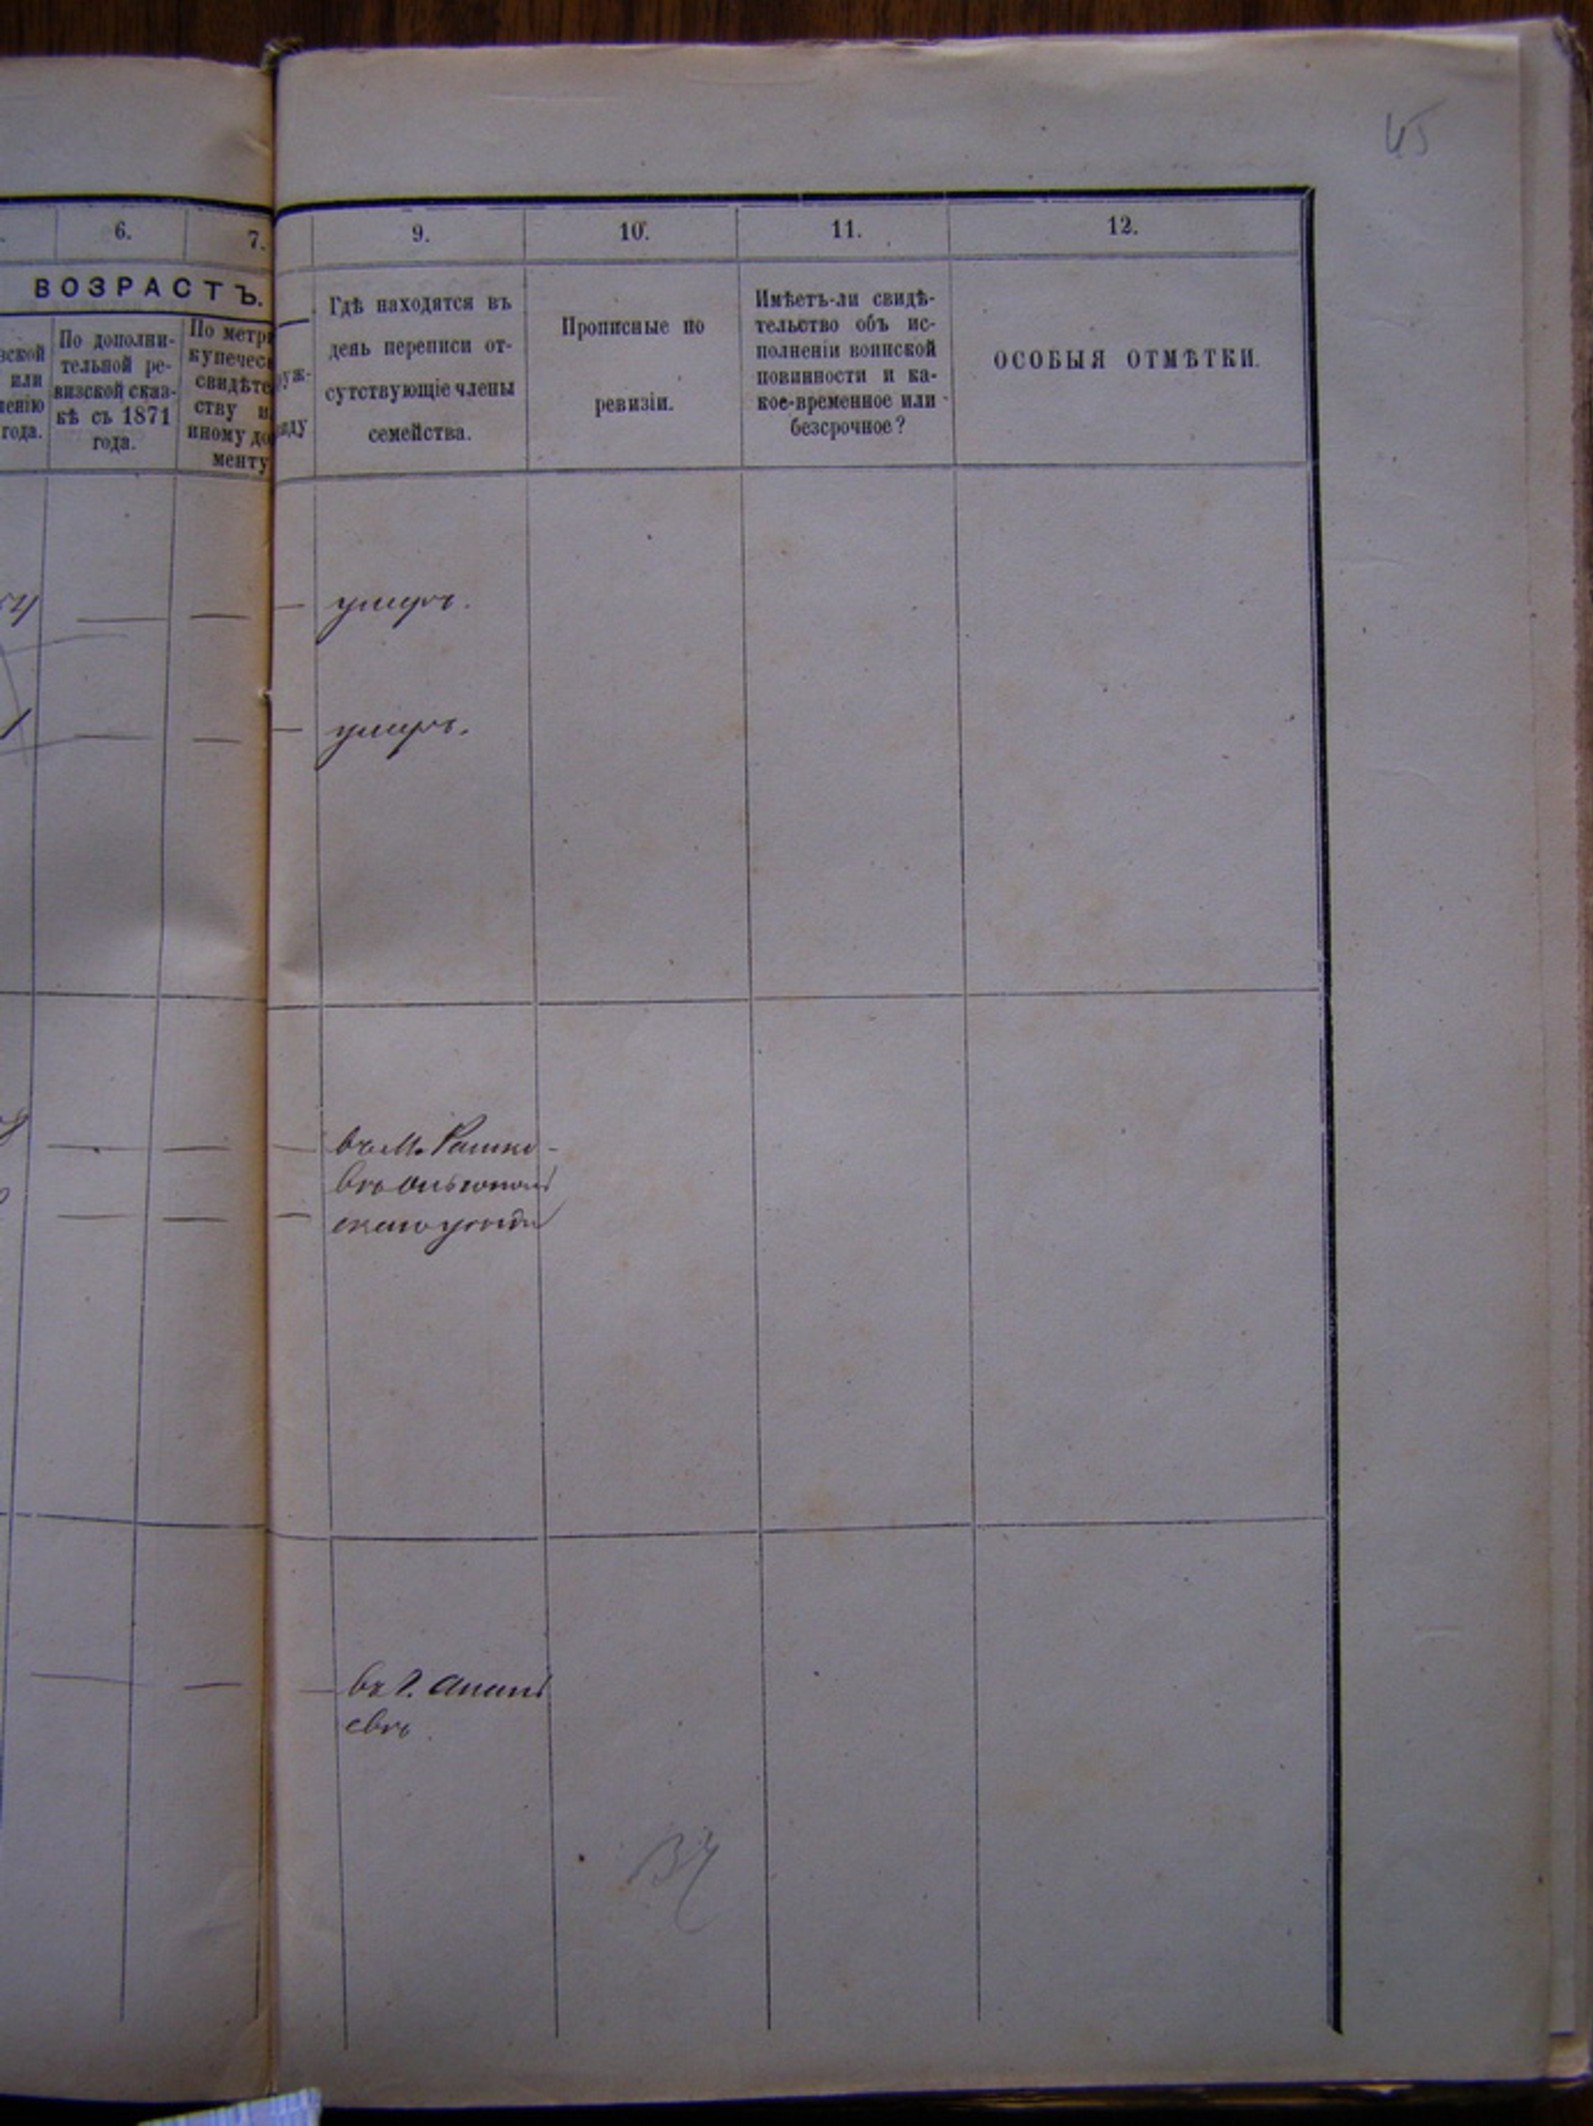 45
6.
7.
9.
10.
11.
12.
ВОЗРАСТЪ.
или
года.
По дополни-
тельной ре-
визской сказ-
кѣ съ 1871
года.
По метр
купечес
свидѣте
ству и
иному до
менту
Гдѣ находятся въ
день переписи от-
сутствующіе члены
семейства.
Прописные по
ревизіи.
Имѣетъ-ли свидѣ-
тельство объ ис-
полненіи воинской
повинности и ка-
кое-временное или
безсрочное?
ОСОБЫЯ ОТМѢТКИ.
умеръ.
умеръ.
въ М. Рашко-
въ Ольгополь
скаго уѣзда
въ г. Анань
евъ.